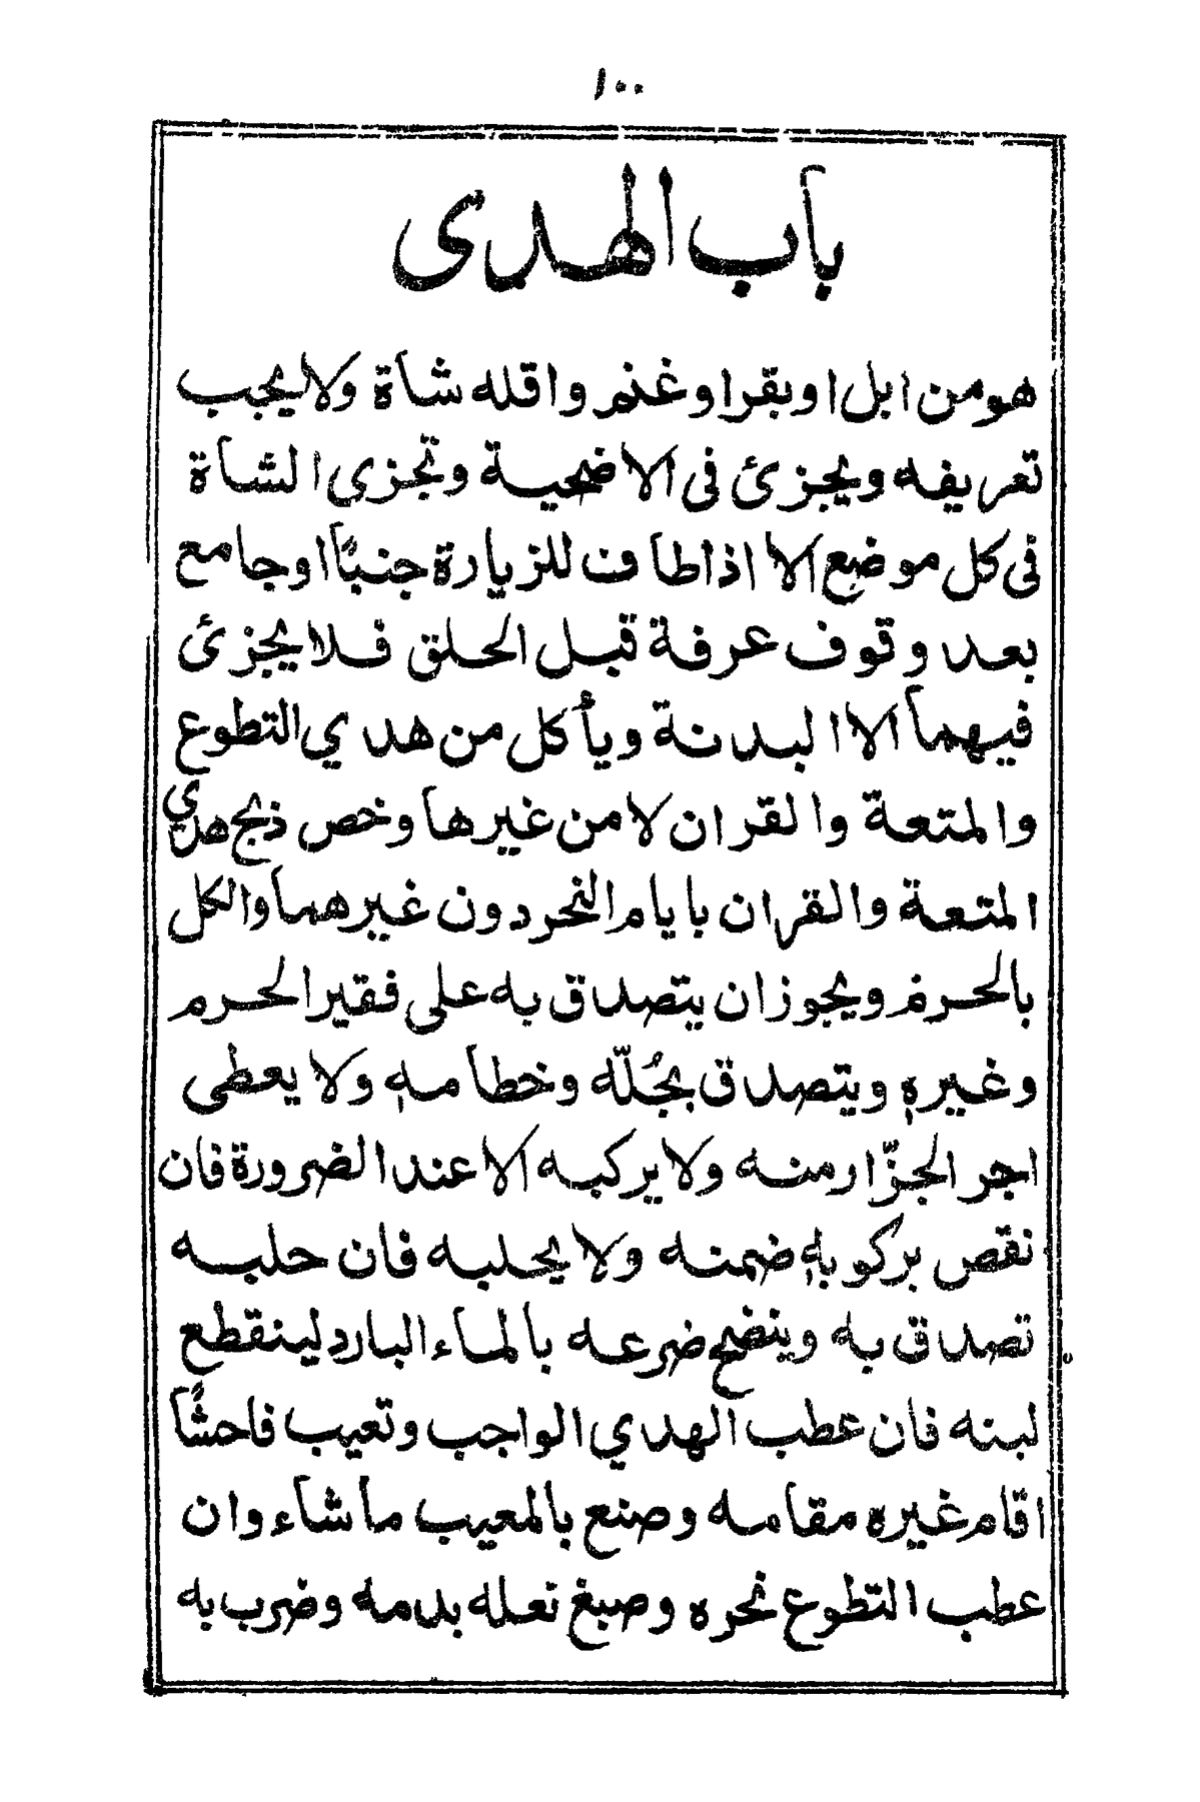 ١٠٠
باب الهدى
هو من ابل او بقر او غنم واقله شاة ولا يجب
تعريفه ويجزئ فى الاضحية وتجزي الشاة
فى كل موضع الا اذا طاف للزيارة جنبًا او جامع
بعد وقوف عرفة قبل الحلق فلا يجزئ
فيهما الا البدنة ويأكل من هدي التطوع
والمتعة والقران لا من غيرها وخص ذبح هدي
المتعة والقران بايام النحر دون غيرهما والكل
بالحرم ويجوز ان يتصدق به على فقير الحرم
وغيره ويتصدق بجُلّه وخطامه ولا يعطى
اجر الجزّار منه ولا يركبه الا عند الضرورة فان
نقص بركوبه ضمنه ولا يحلبه فان حلبه
تصدق به وينضح ضرعه بالماء البارد لينقطع
لبنه فان عطب الهدي الواجب وتعيب فاحشًا
اقام غيره مقامه وصنع بالمعيب ما شاء وان
عطب التطوع نحره وصبغ نعله بدمه وضرب به